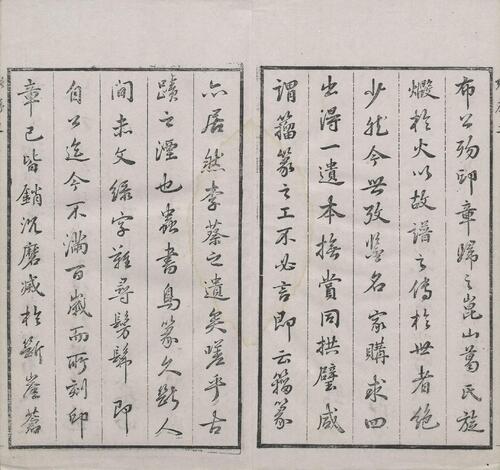 布公歿印章歸之崑山葛氏旋
燬於火以故譜之傳於世者絶
少然今世攷鑒名家購求四
出得一遺本撫賞同拱璧咸
謂籀篆之工不必言即云籀篆
亦居然李蔡之遺矣嗟乎古
蹟之湮也蟲書鳥篆久斷人
間赤文綠字難尋髣髴即
自公迄今不滿百歲而所刻印
章已皆銷沉磨滅於斷崖蒼